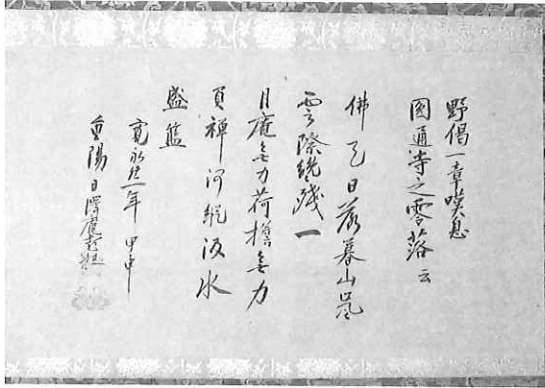 野偈一章嘆息
圓通寺之零落云
佛天日落暮山嵐
雲際纔殘一
月庵無力荷擔無力
負禪河縦汲水
盛籃
寛永廿一年甲申
重陽日澤庵